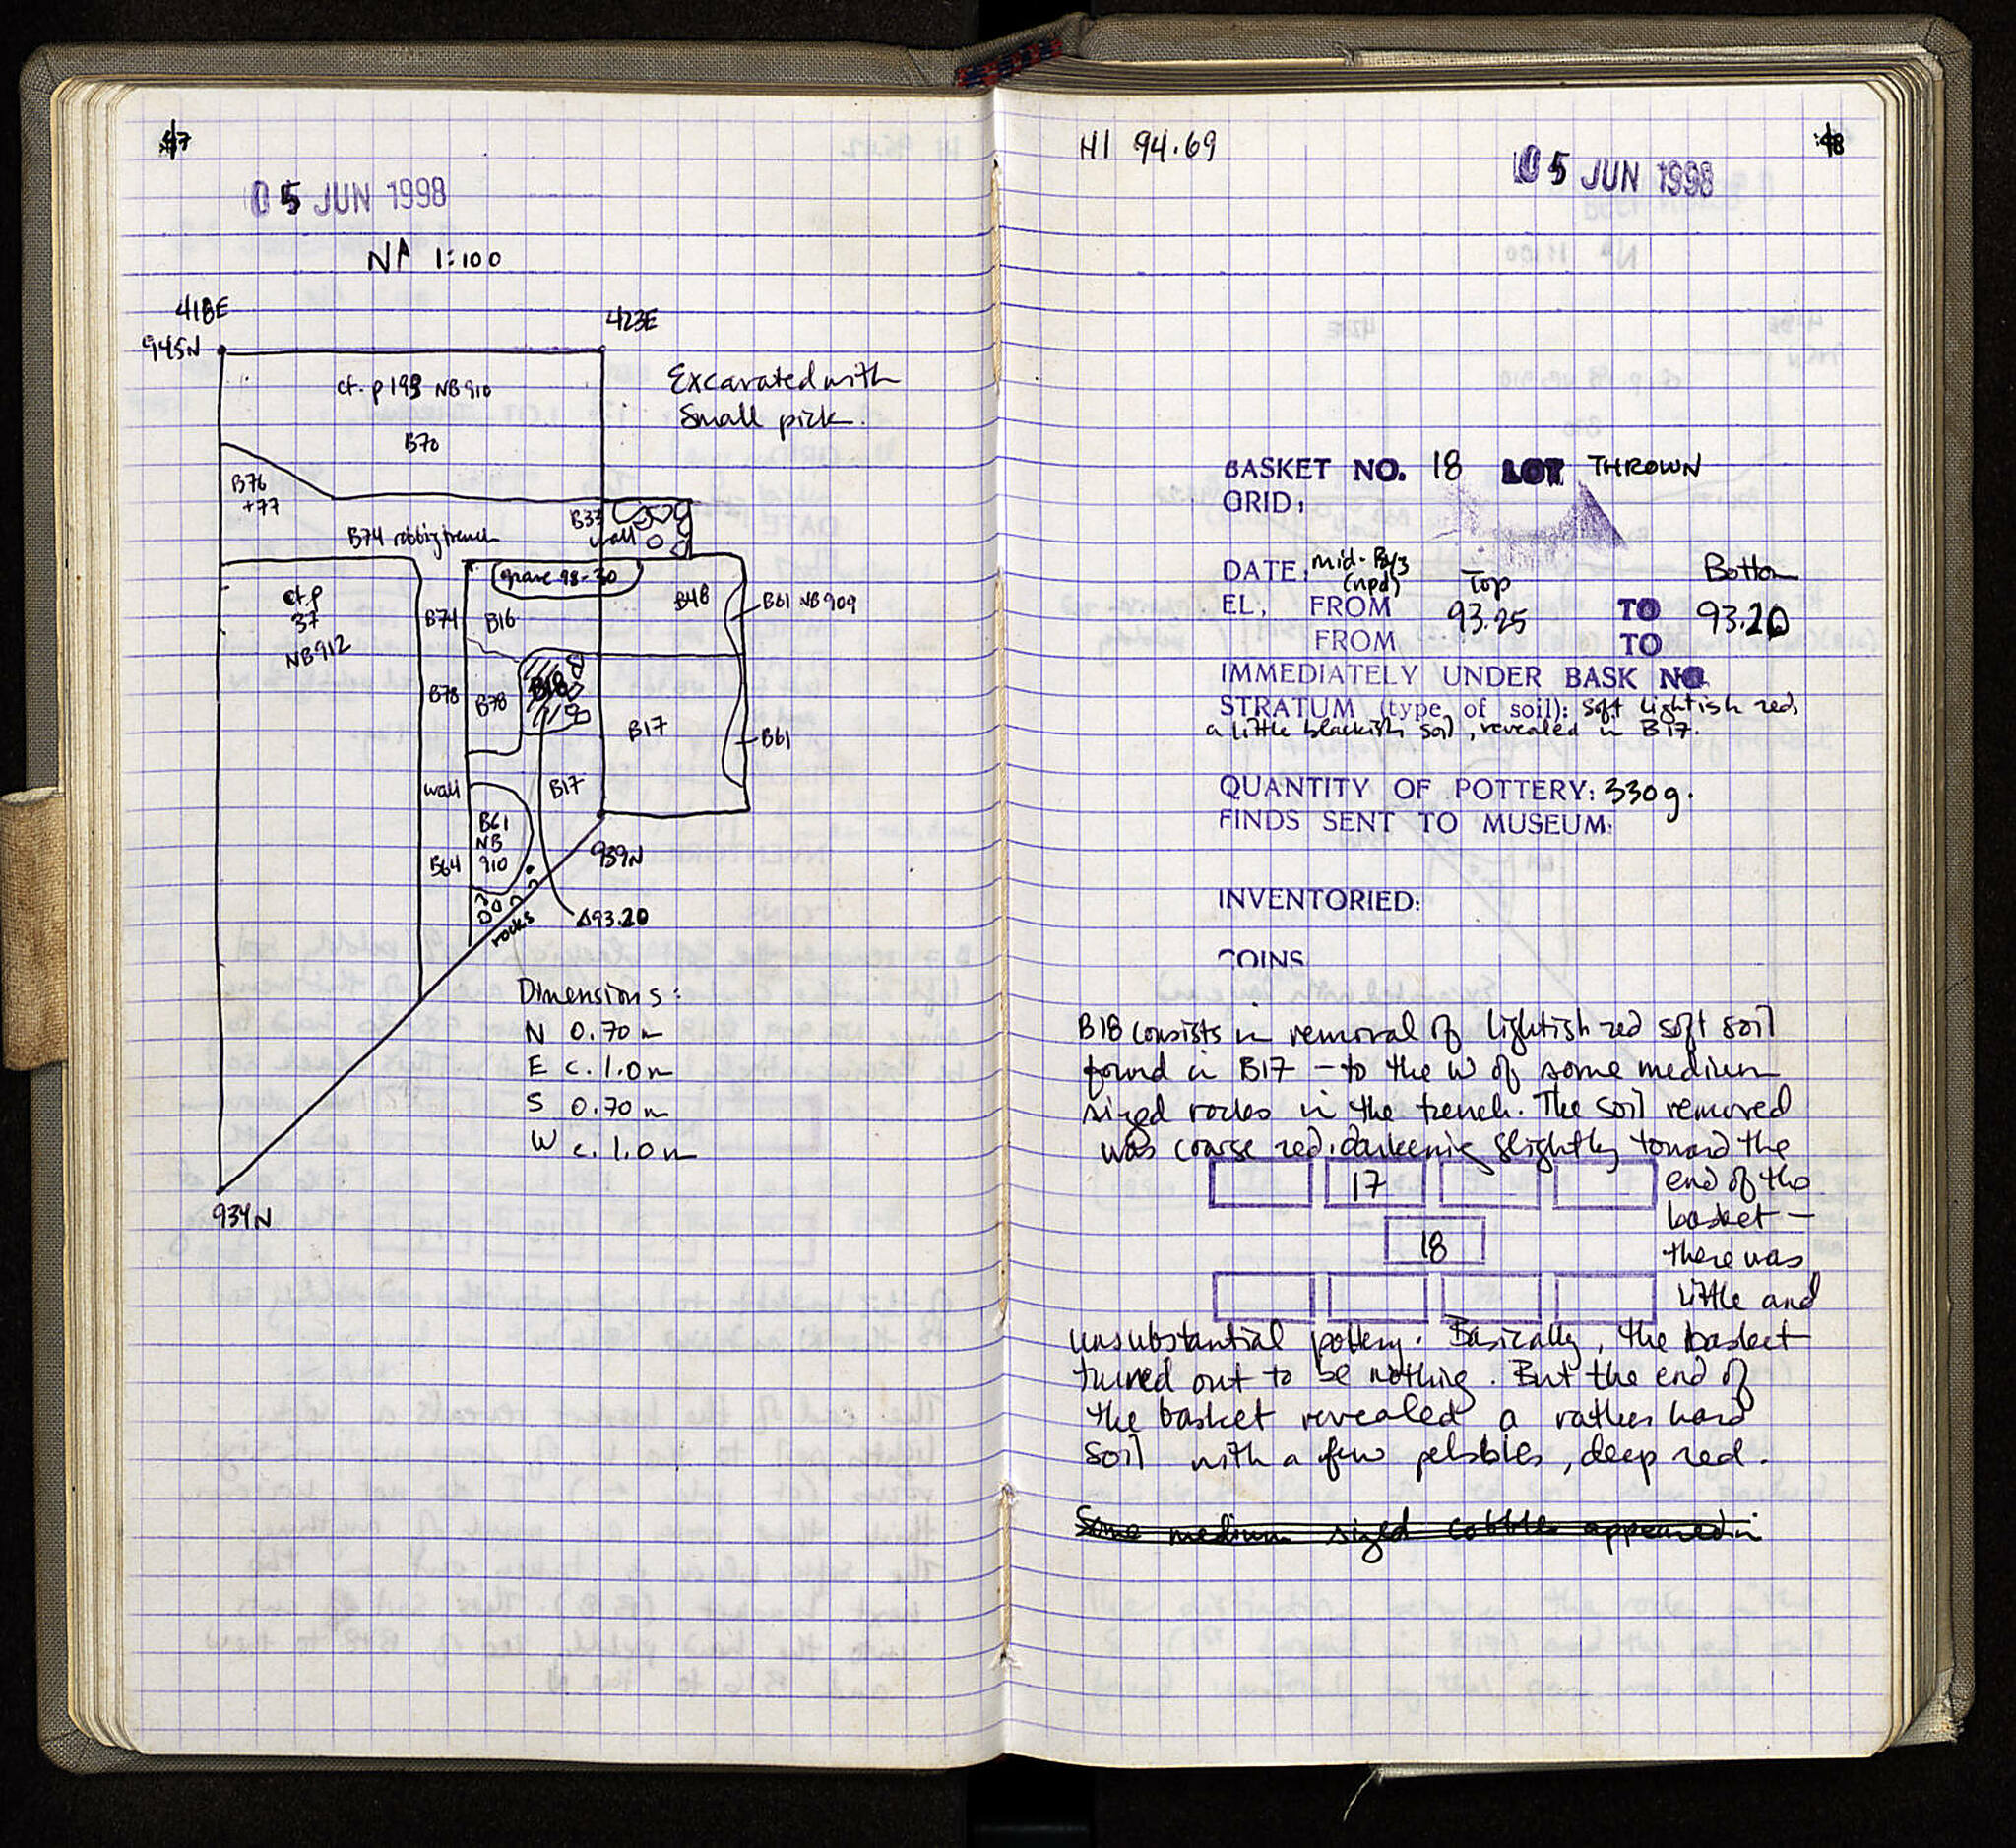 47
05 JUN 1998
N↑ 1:100
418E
423E
945N
cf. p 193 NB 910
Excavated with
small pick.
B70
B76
+77
B33
wall
B74 robbing trench
grave 98-30
cf. p
37
NB912
B74
B16
B48
B61 NB 909
B78
B78
B18
B17
B61
wall
B17
B61
NB
910
B64
939N
rocks
Δ93.20
Dimensions:
N 0.70 m
E c. 1.0 m
S 0.70 m
W c. 1.0 m
934N
HI 94.69
48
05 JUN 1998
BASKET NO. 18 LOT THROWN
GRID:
DATE: mid-
(npd)
Top
Bottom
EL., FROM 93.25 TO 93.20
FROM TO
IMMEDIATELY UNDER BASK NO
STRATUM (type of soil): soft lightish red,
a little blackish soil, revealed in B17.
QUANTITY OF POTTERY: 330g.
FINDS SENT TO MUSEUM:
INVENTORIED:
COINS
B18 consists in removal of lightish red soft soil
found in B17 – to the W of some medium
sized rocks in the trench. The soil removed
was coarse red, darkening slightly toward the
17
end of the
basket –
18
there was
little and
unsubstantial pottery. Basically, the basket
turned out to be nothing. But the end of
the basket revealed a rather hard
soil with a few pebbles, deep red.
Some medium sized cobbles appeared in